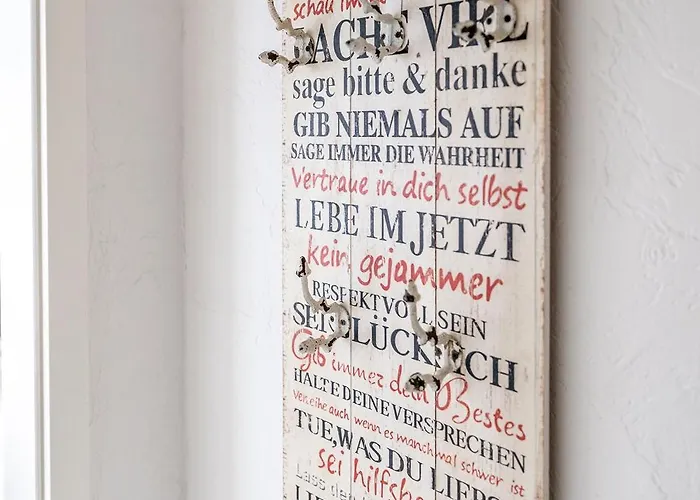 schau im
LACHE VIEL
sage bitte & danke
GIB NIEMALS AUF
SAGE IMMER DIE WAHRHEIT
Vertraue in dich selbst
LEBE IM JETZT
kein gejammer
RESPEKTVOLL SEIN
SEI GLÜCKLICH
Gib immer dein Bestes
HALTE DEINE VERSPRECHEN
Verzeihe auch wenn es manchmal schwer ist
TUE, WAS DU LIEBS
sei hilfsbe
Lass dein